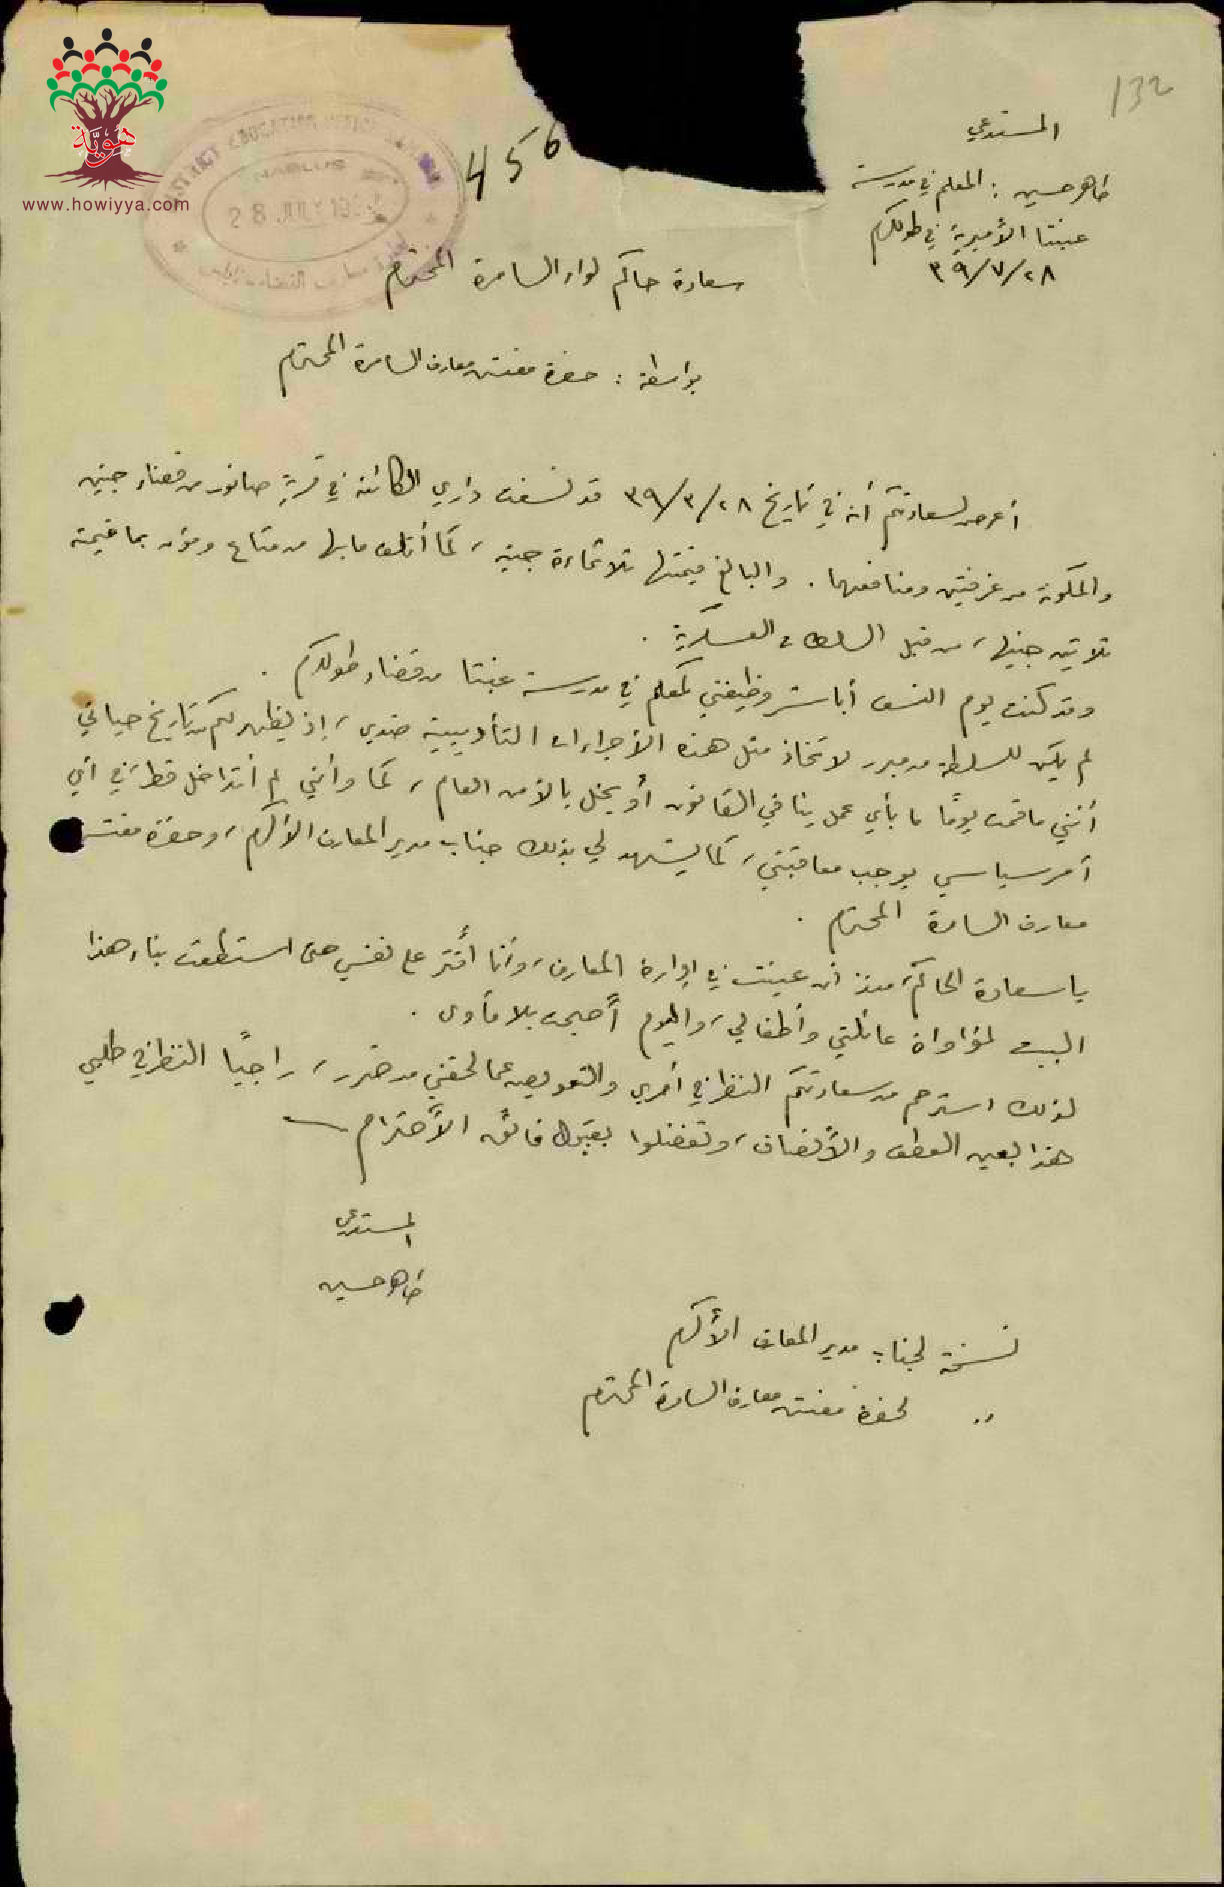 هوية
www.howiyya.com
132
456
DISTRICT EDUCATION OFFICE
NABLUS
28 JULY 19
المستدعي
ظاهر حسين : المعلم في مدرسة
عنبتا الأميرية في طولكرم
٣٩/٧/٢٨
سعادة حاكم لواء السامرة المحترم
بواسطة : حضرة مفتش معارف السامرة المحترم
أعرض لسعادتكم أنه في تاريخ ٣٩/٣/٢٨ قد نسفت داري الكائنة في قرية صانور من قضاء جنين
والمكونة من غرفتين ومنافعهما . والبالغ قيمتها ثلاثماءة جنيه ، كما أتلف ما بها من متاع ومؤن بما قيمته
ثلاثين جنيها ، من قبل السلطات العسكرية .
وقد كنت يوم النسف أباشر وظيفتي كمعلم في مدرسة عنبتا من قضاء طولكرم .
لم يكن للسلطة من مبرر لاتخاذ مثل هذه الأجراءات التأديبية ضدي ، إذ يظهر لكم من تاريخ حياتي
أنني ما قمت يومًا ما بأي عمل ينافي القانون أو يخل بالأمن العام ، كما وأنني لم أتداخل قط ، في أي
أمر سياسي يوجب معاقبتي ، كما يشهد لي بذلك جناب مدير المعارف الأكرم ، وحضرة مفتش
معارف السامرة المحترم .
يا سعادة الحاكم ، منذ أن عينت في إدارة المعارف ، وأنا أقتر على نفسي حتى استطعت بناء هذا
البيت لمؤاواة عائلتي وأطفالي ، واليوم أصبحت بلا مأوى .
لذلك استرحم من سعادتكم النظر في أمري والتعويض عما لحقني من ضرر ، راجيًا النظر في طلبي
هذا بعين العطف والأنصاف ، وتفضلوا بقبول فائق الأحترام
المستدعي
ظاهر حسين
نسخة لجناب مدير المعارف الأكرم
" لحضرة مفتش معارف السامرة المحترم